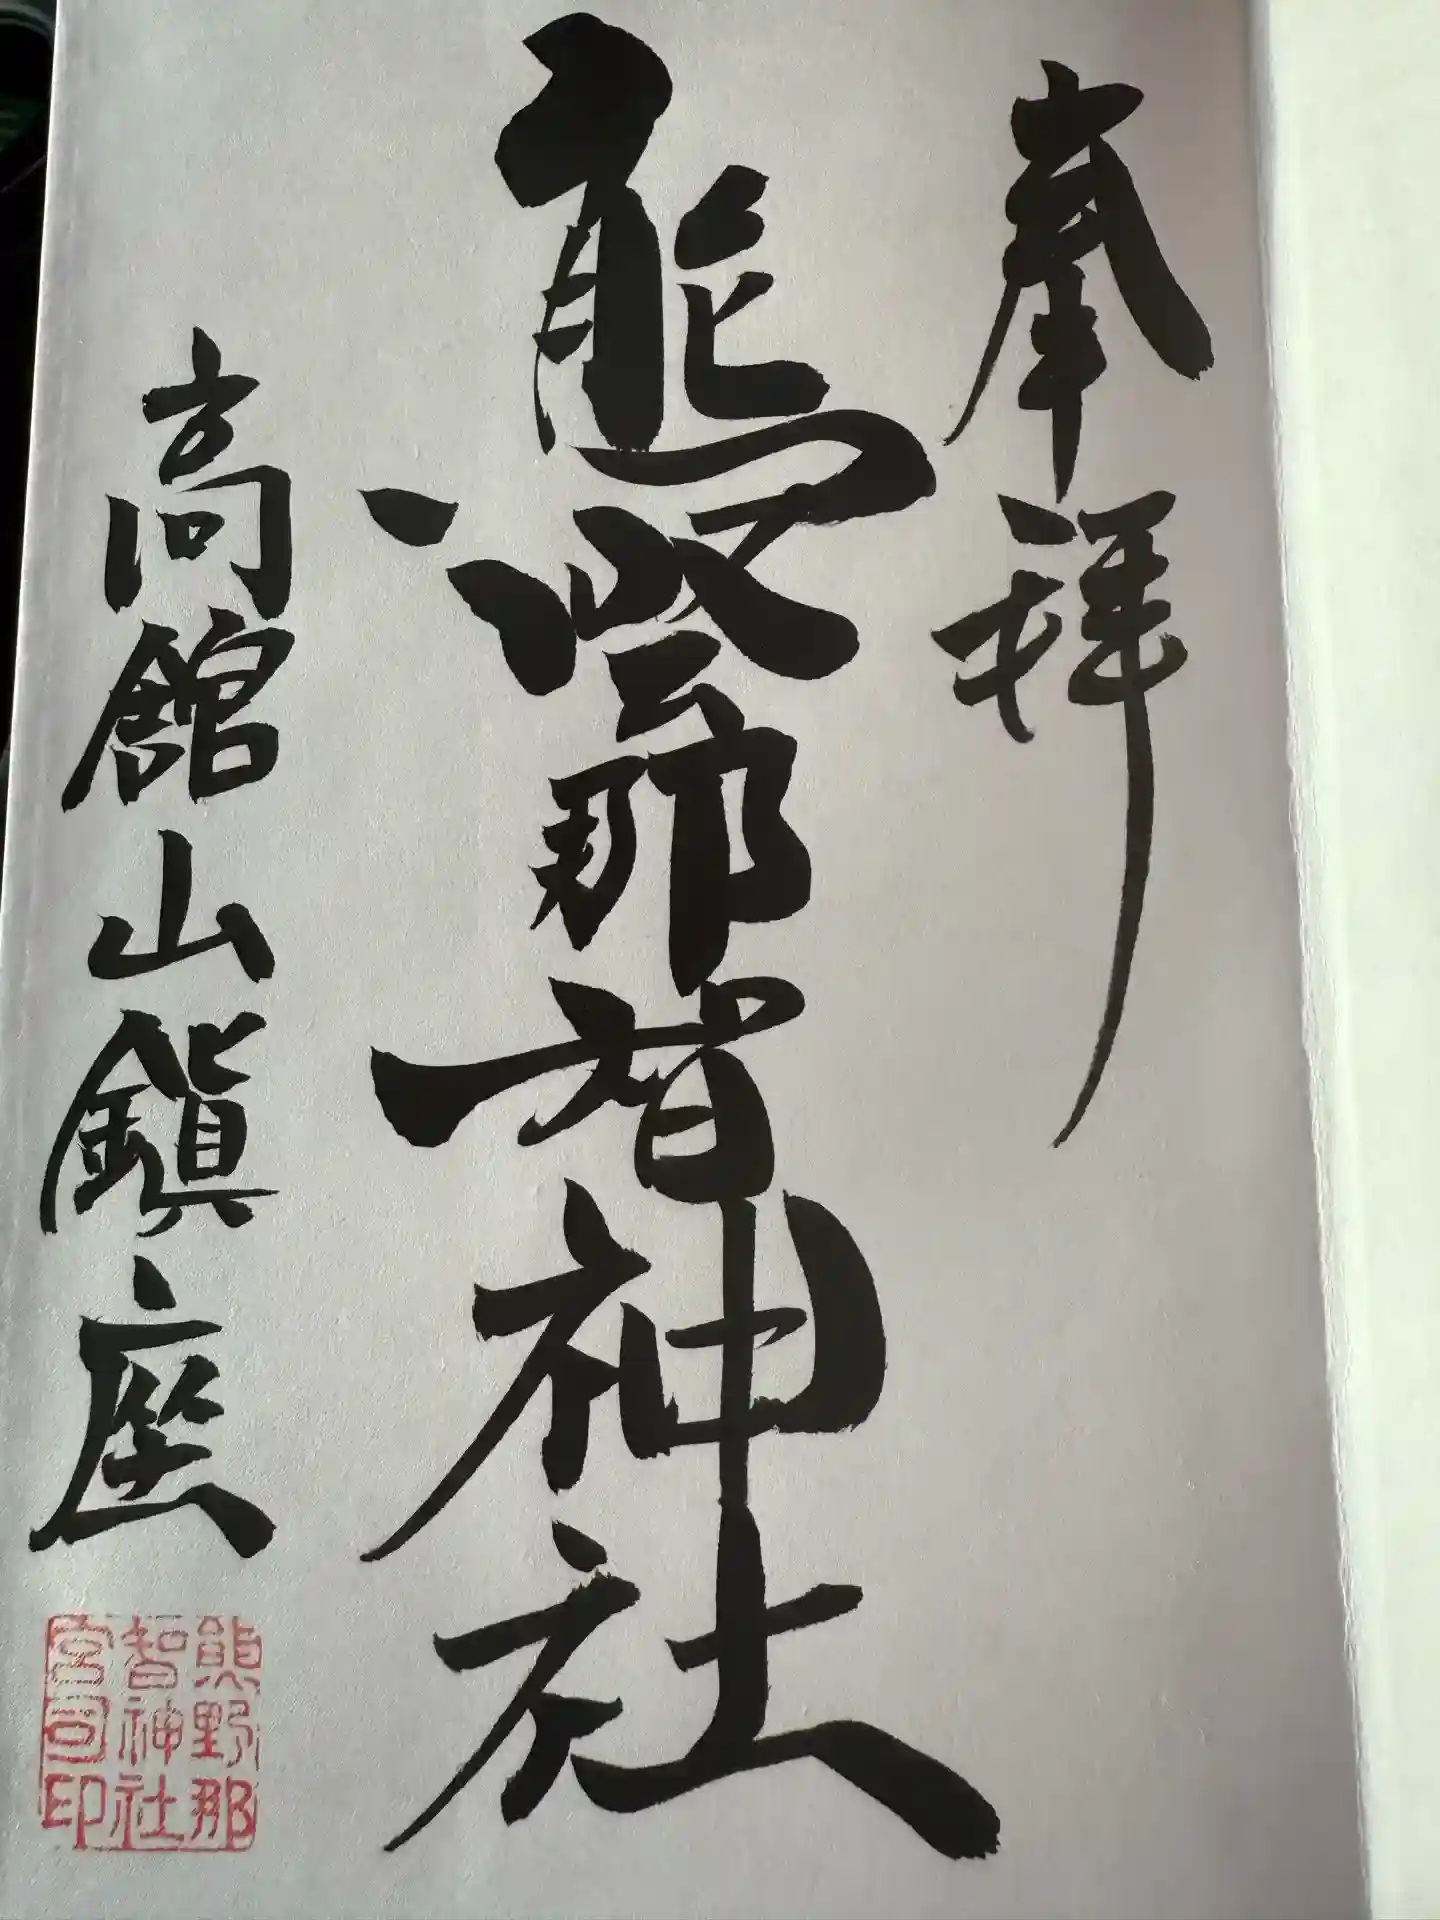 奉拝
熊野那智神社
高舘山鎭座
熊野那
智神社
宮司印